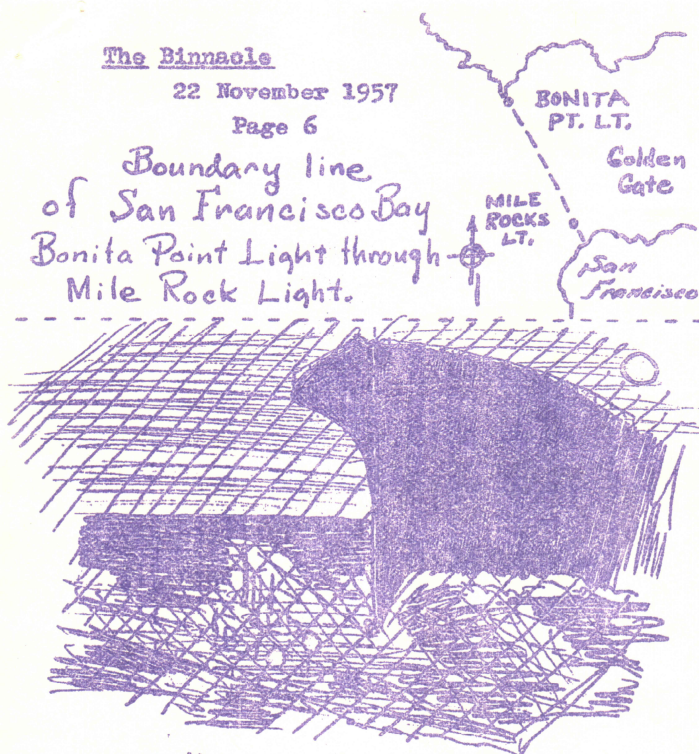 The Binnacle
22 November 1957
Page 6
Boundary line
of San Francisco Bay
Bonita Point Light through
Mile Rock Light.
BONITA
PT. LT.
Golden
Gate
MILE
ROCKS
LT.
San
Francisco